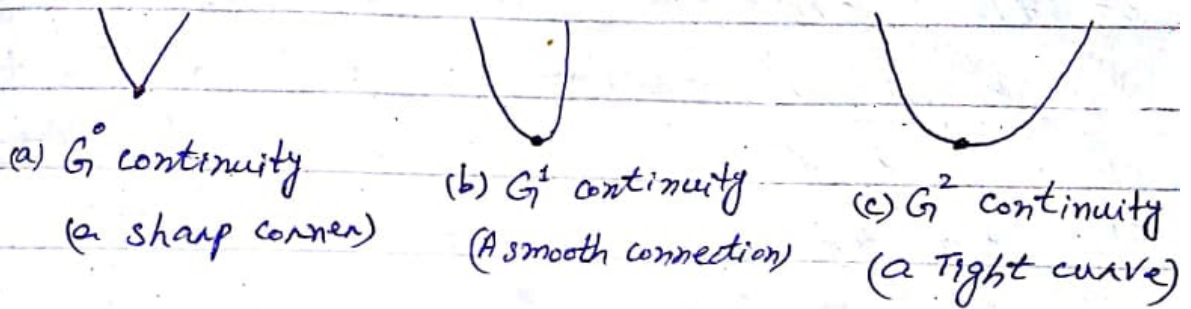 (a) G⁰ continuity
(a sharp corner)
(b) G¹ continuity
(A smooth connection)
(c) G² continuity
(a Tight curve)